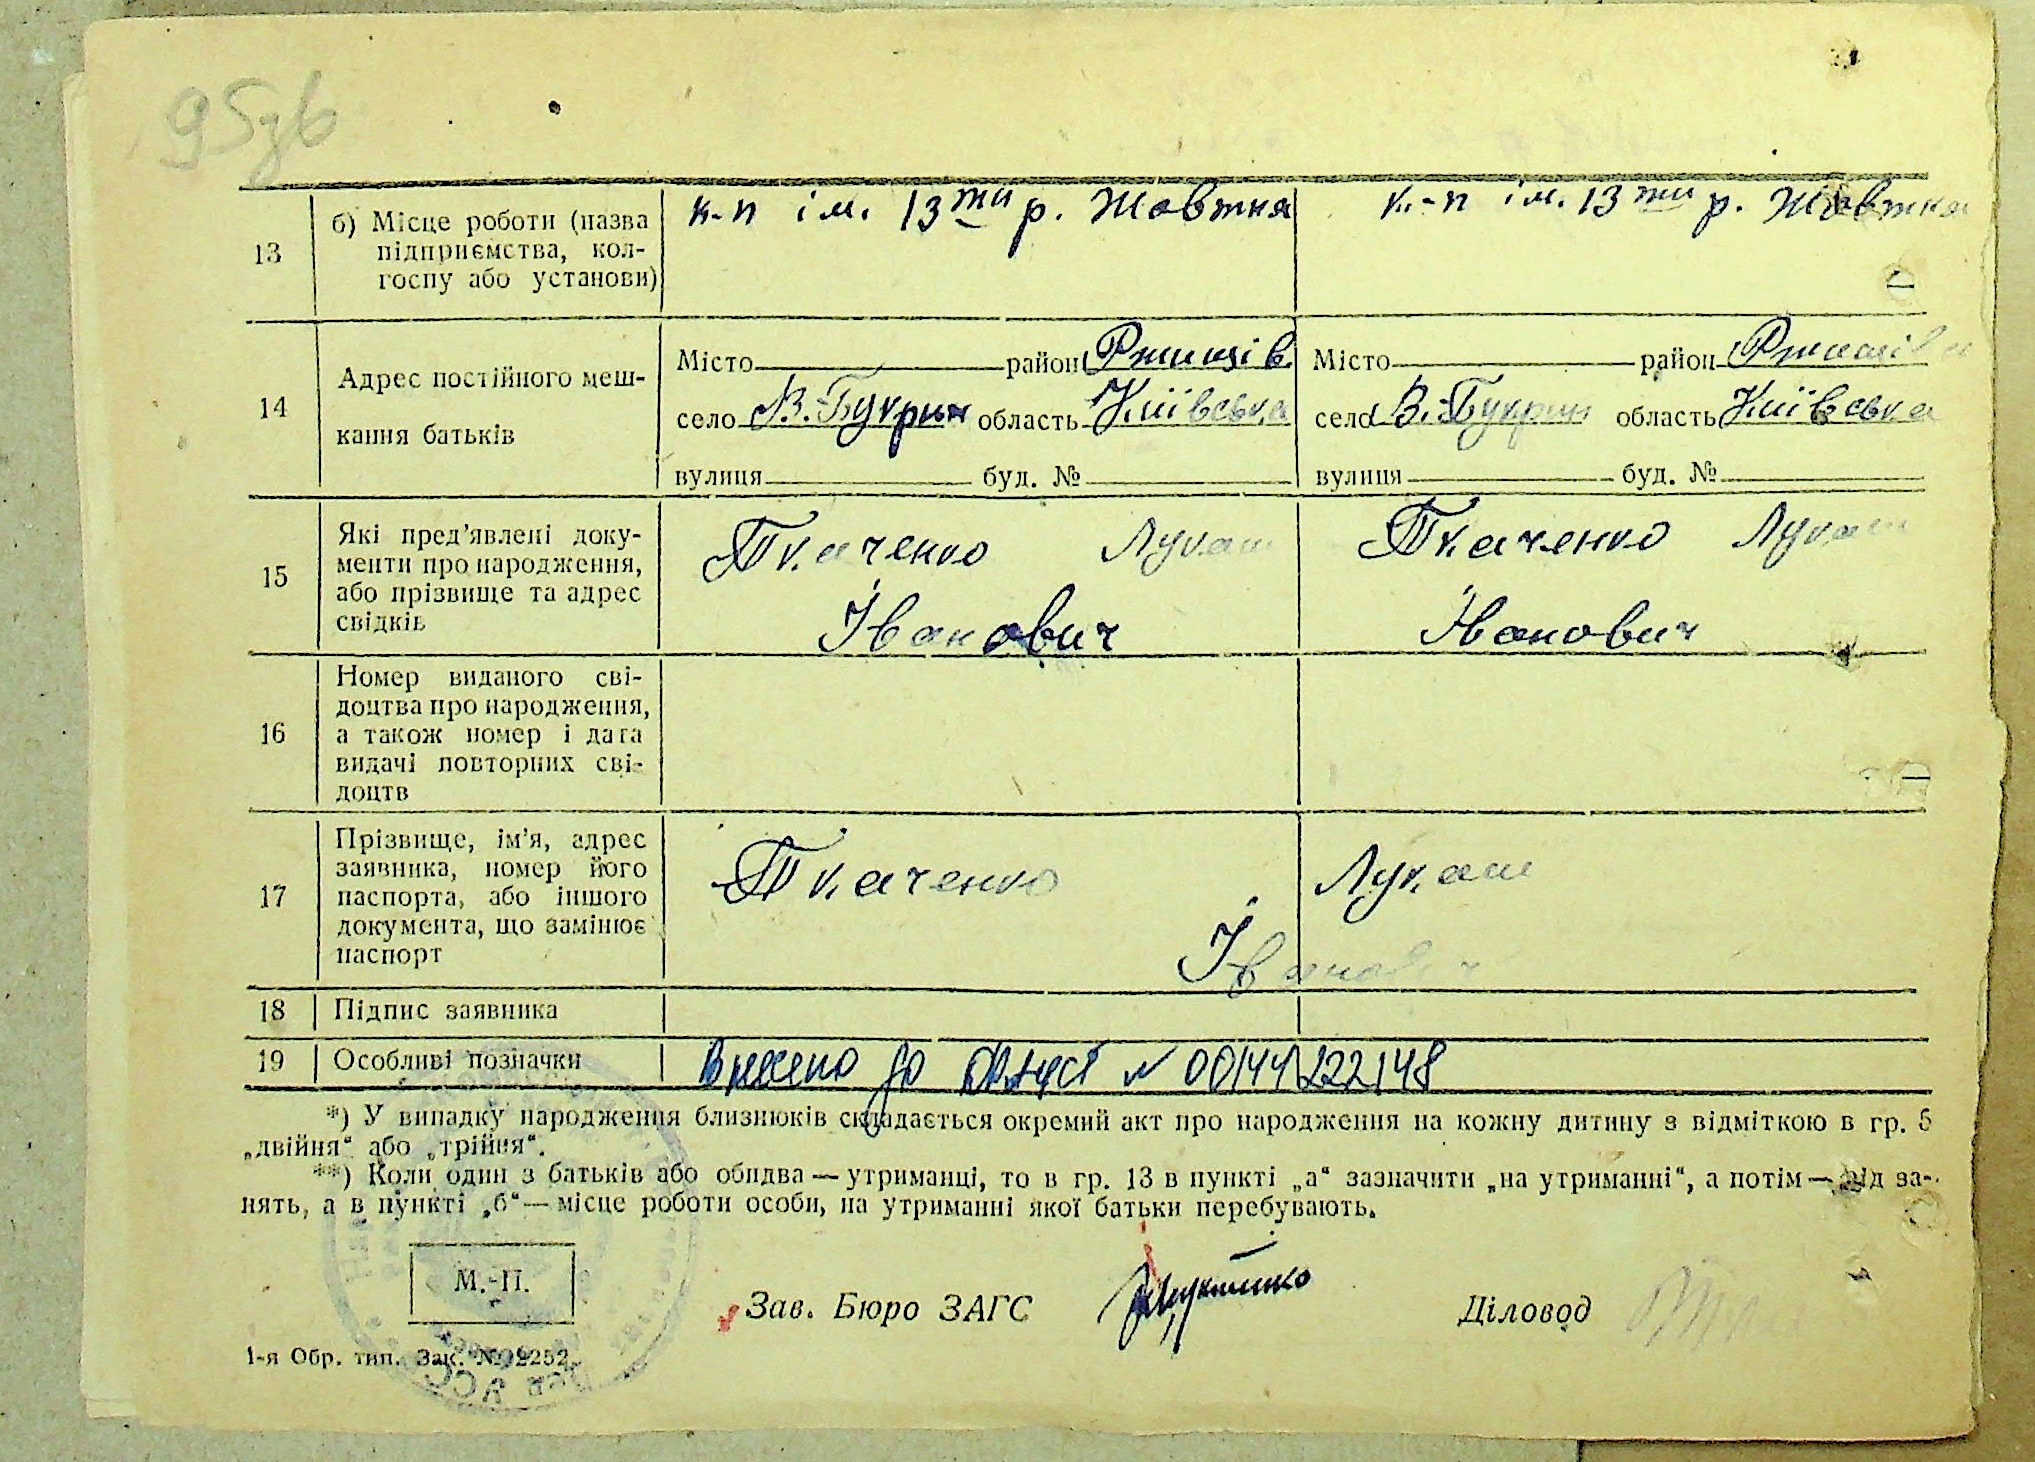 95зв
13 б) Місце роботи (назва підприємства, колгоспу або установи) к-п ім. 13ти р. Жовтня к-п ім. 13ти р. Жовтня
14 Адрес постійного меш-
кання батьків
Місто район Ржищів Місто район Ржищів
село В.-Букрин область Київська село В.-Букрин область Київська
вулиця буд. № вулиця буд. №
15 Які пред’явлені доку-
менти про народження,
або прізвище та адрес
свідків
Ткаченко Лукаш Ткаченко Лукаш
Іванович Іванович
16 Номер виданого сві-
доцтва про народження,
а також номер і дата
видачі повторних сві-
доцтв
17 Прізвище, ім’я, адрес
заявника, номер його
паспорта, або іншого
документа, що замінює
паспорт
Ткаченко Лукаш
Іванович
18 Підпис заявника
19 Особливі позначки Внесено до № 00144222148
*) У випадку народження близнюків складається окремий акт про народження на кожну дитину з відміткою в гр. 5
„двійня“ або „трійня“.
**) Коли один з батьків або обидва — утриманці, то в гр. 13 в пункті „а“ зазначити „на утриманні“, а потім — рід за-
нять, а в пункті „б“ — місце роботи особи, на утриманні якої батьки перебувають.
М.-П.
Зав. Бюро ЗАГС Діловод
1-я Обр. тип. Зак. № 2252.